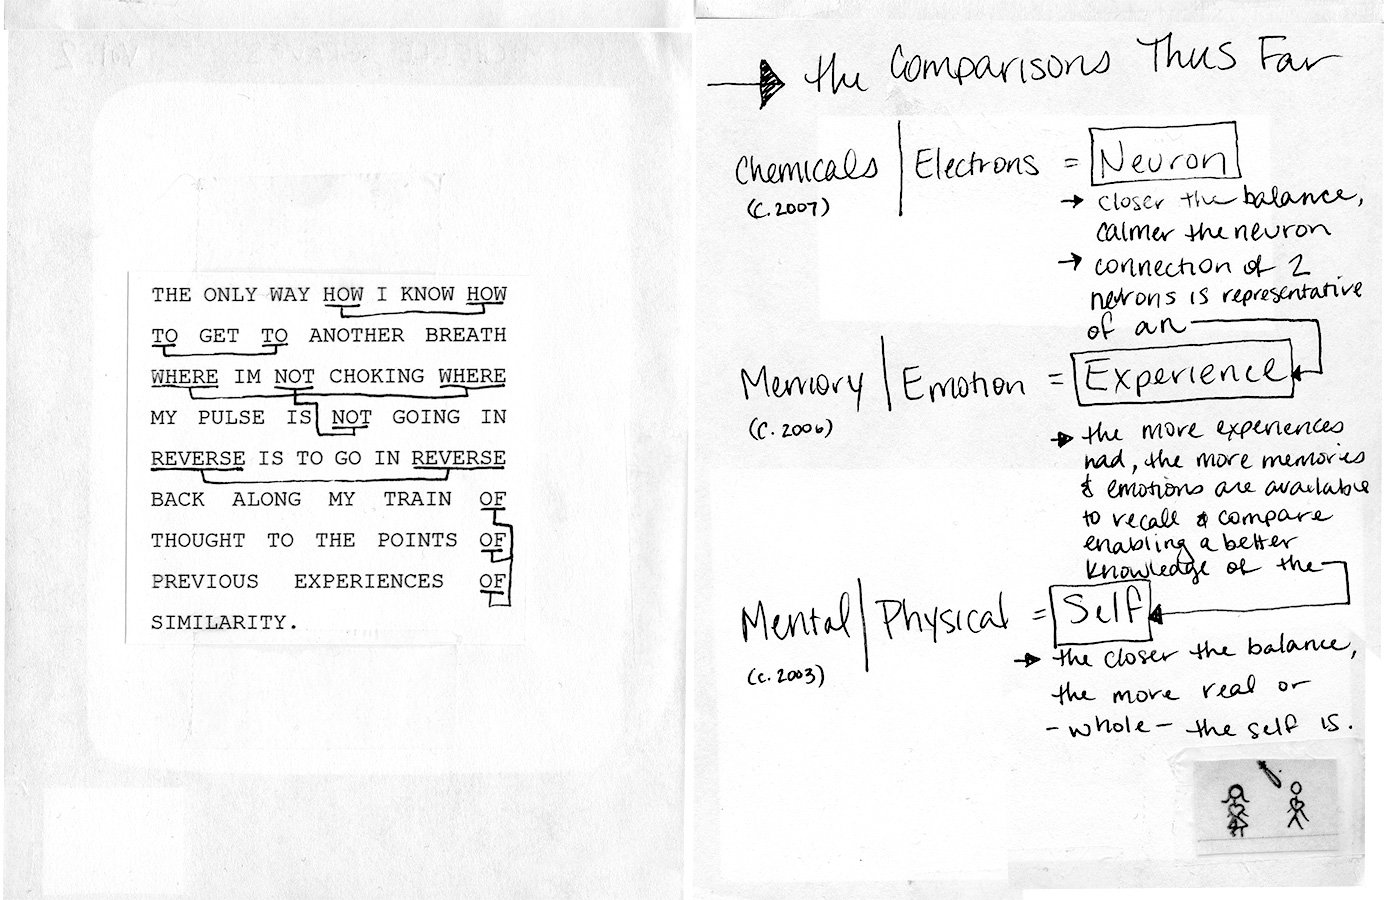 THE ONLY WAY HOW I KNOW HOW
TO GET TO ANOTHER BREATH
WHERE IM NOT CHOKING WHERE
MY PULSE IS NOT GOING IN
REVERSE IS TO GO IN REVERSE
BACK ALONG MY TRAIN OF
THOUGHT TO THE POINTS OF
PREVIOUS EXPERIENCES OF
SIMILARITY.
the Comparisons Thus Far
Chemicals | Electrons = Neuron
(C. 2007)
→ closer the balance,
calmer the neuron
→ connection of 2
neurons is representative
of an
Memory | Emotion = Experience
(C. 2006)
→ the more experiences
had, the more memories
& emotions are available
to recall & compare
enabling a better
knowledge of the
Mental | Physical = Self
(C. 2003)
→ the closer the balance,
the more real or
- whole - the self is.